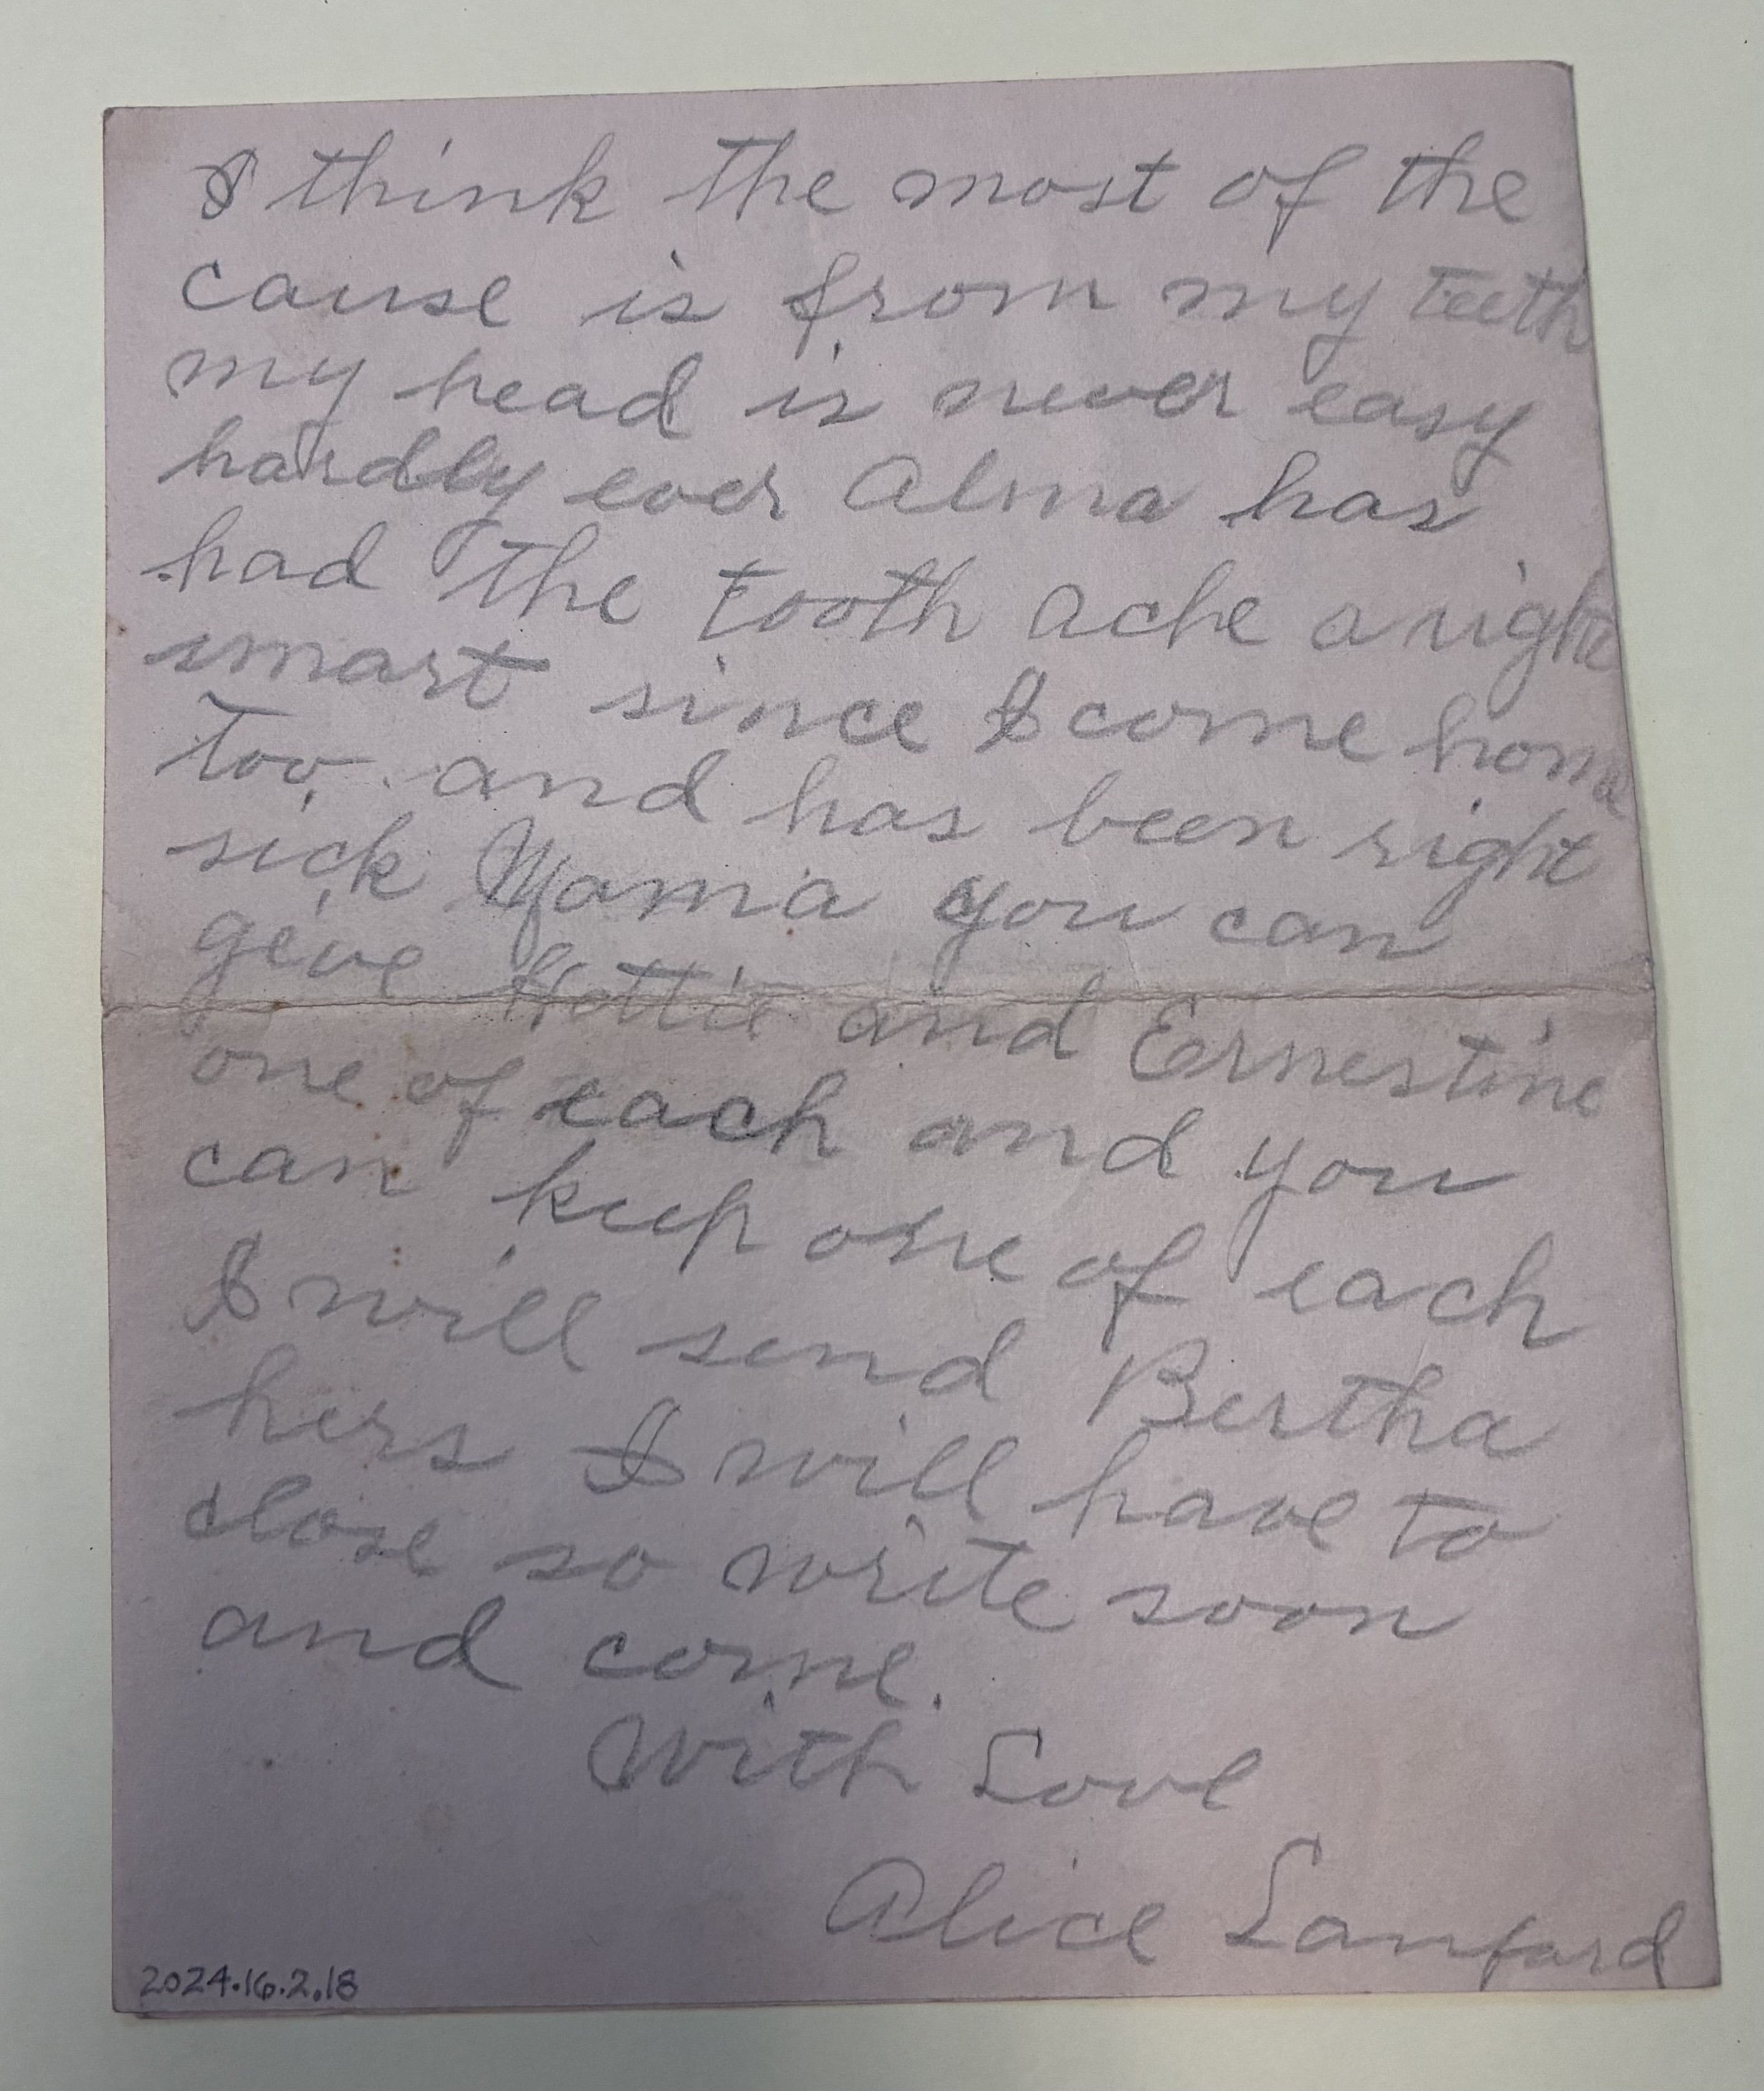 I think the most of the
cause is from my teeth
my head is never easy
hardly ever Alma has
had the tooth ache a right
smart since I come home
too, and has been right
sick Mama you can
give Hattie and Ernestine
one of each and you
can keep one of each
I will send Bertha
hers I will have to
close so write soon
and come.
With Love
Alice Lanford
2024.16.2.18